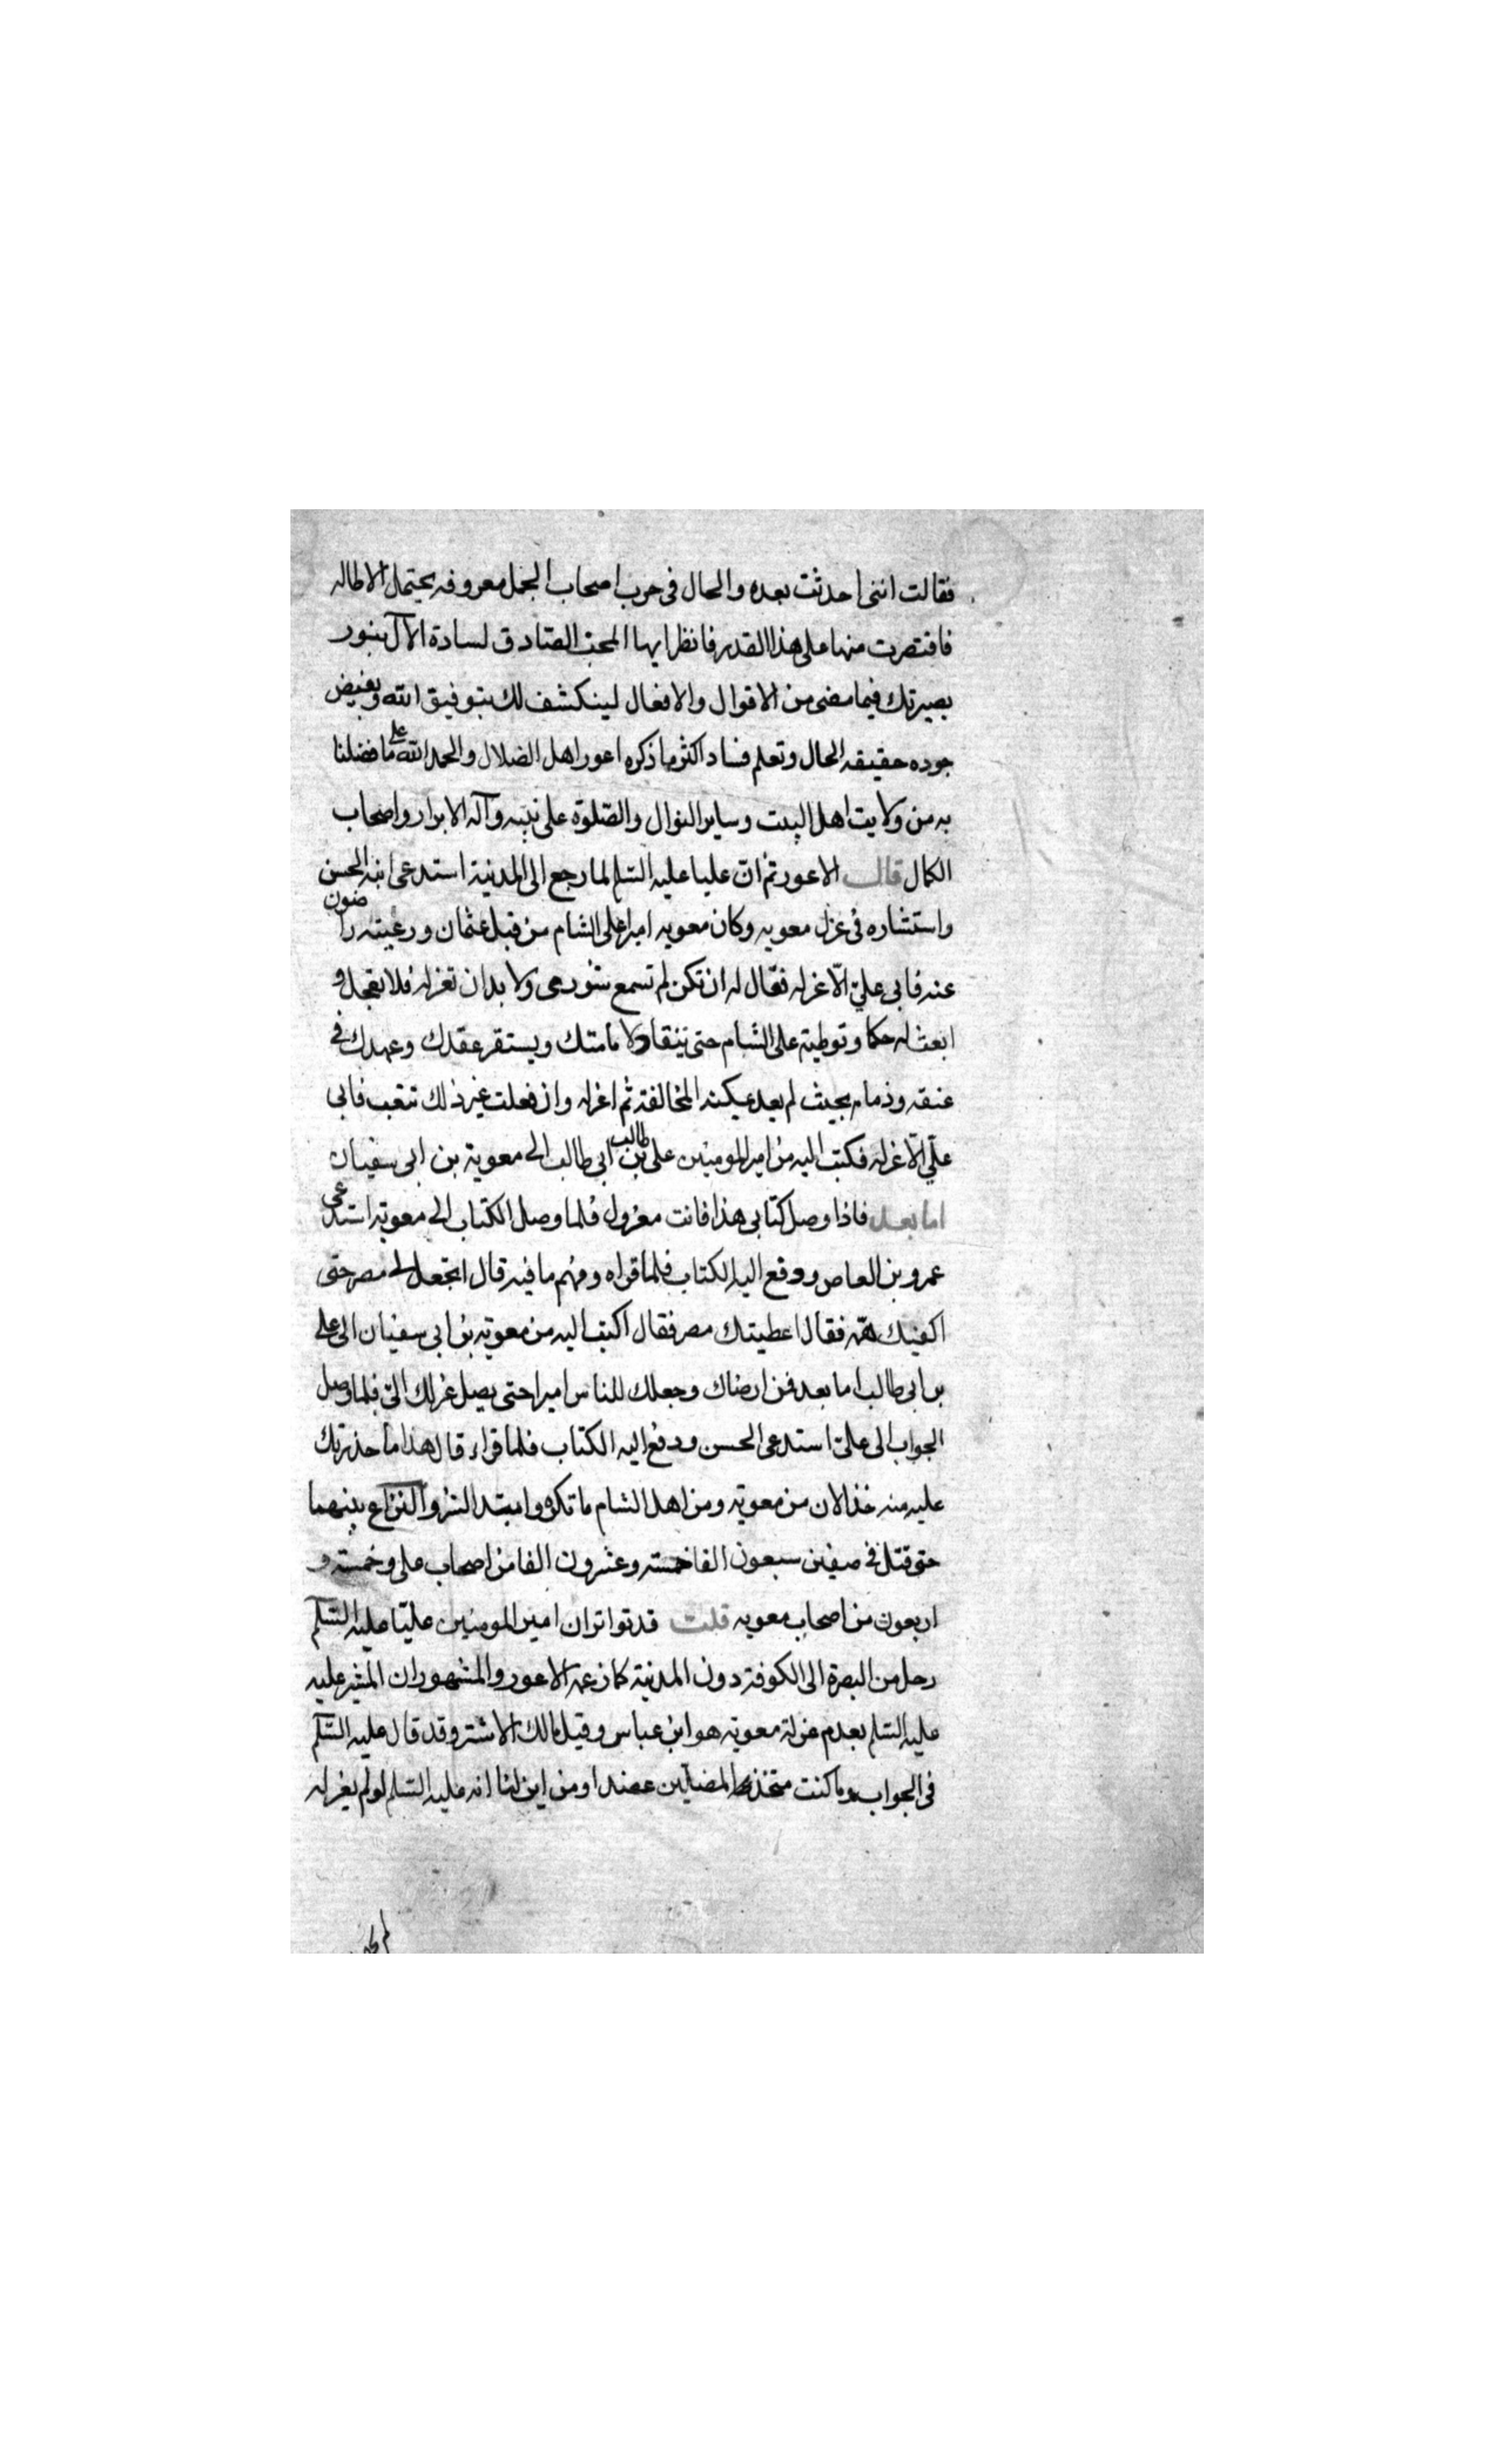 فقالت اننى احدثت بعده والحال فى حرب اصحاب الجمل معروفه يحتمل الاطاله
فاقتصرت منها على هذا القدر فانظر ايها المحب الصادق لسادة الآل بنور
بصيرتك فيما مضى من الاقوال والافعال لينكشف لك بتوفيق الله وبفيض
جوده حقيقه الحال وتعلم فساد اكثر ما ذكره اعور اهل الضلال والحمد لله على ما فضلنا
به من ولايت اهل البيت وساير النوال والصلوة على نبيه وآله الابرار واصحاب
الكمال قال الاعور ثم ان عليا عليه السلم لما رجع الى المدنية استدعى ابنه الحسن
واستشاره فى عزل معويه وكان معويه اميرا على الشام من قبل عثمان ورعيته راضون
عنه فابى على الّا عزله فقال له ان تكن لم تسمع شورمى ولا بد ان تعزله فلا تعجل و
ابعث له حكما وتوطية على الشام حتى ينقاد لامامتك ويستقر عقدك وعهدك فى
عنقه وذمامه بحيث لم يعد يمكنه المخالفة ثم اعزله وان فعلت غير ذلك تتعب فابى
على الّا عزله فكتب اليه من امير المومنين على بن ابى طالب الى معوية بن ابى سفيان
اما بعد فاذا وصل كتابى هذا فانت معزول فلما وصل الكتاب الى معويه استدعى
عمرو بن العاص ووقع اليه الكتاب فلما قراه وفهم ما فيه قال اتجعل لى مصر حتى
اكفيك همّه فقال اعطيتك مصر فقال اكتب اليه من معويه بن ابى سفيان الى على
بن ابى طالب اما بعد فمن ارضاك وجعلك للناس اميرا حتى يصل عزلك الىّ فلما وصل
الجواب الى علىّ استدعى الحسن ودفع اليه الكتاب فلما قراء قال هذا ما حذرتك
عليه منه خذ الان من معويه ومن اهل الشام ما تكره وابتدا الشر والنزاع بينهما
حتى قتل فى صفين سبعون الفا خمسه وعشرون الفا من اصحاب على وخمسه و
اربعون من اصحاب معويه قلت قد تواتر ان امير المومنين عليّا عليه السلم
رحل من البصرة الى الكوفة دون المدنية كما زعمه الاعور والمشهور ان المشير عليه
عليه السلم بعدم عزلة معويه هو ابن عباس وقيل مالك الاشتر وقد قال عليه السلم
فى الجواب وما كنت متخذ المضلّين عضدا ومن اين لنا انه عليه السلم لو لم يعزله